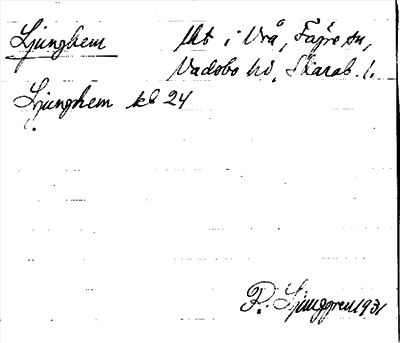 Ljunghem lht i Vrå, Fägre sn,
Vadsbo hd, Skarab. l.
Ljunghem kb 24
P. Ljunggren 1931